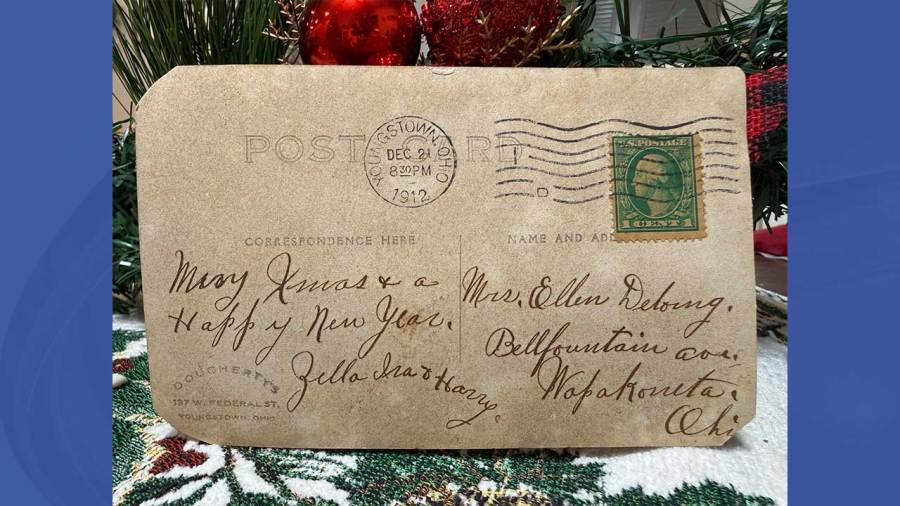 POST CARD
YOUNGSTOWN, OHIO
DEC 21
8 30 PM
1912
U.S. POSTAGE
1 CENT 1
CORRESPONDENCE HERE
NAME AND ADD
Merry Xmas & a
Happy New Year.
Zella Ira & Harry.
DOUGHERTY'S
197 W. FEDERAL ST.
YOUNGSTOWN, OHIO
Mrs. Ellen Deloung.
Bellfountain ave.
Wapakoneta.
Ohi